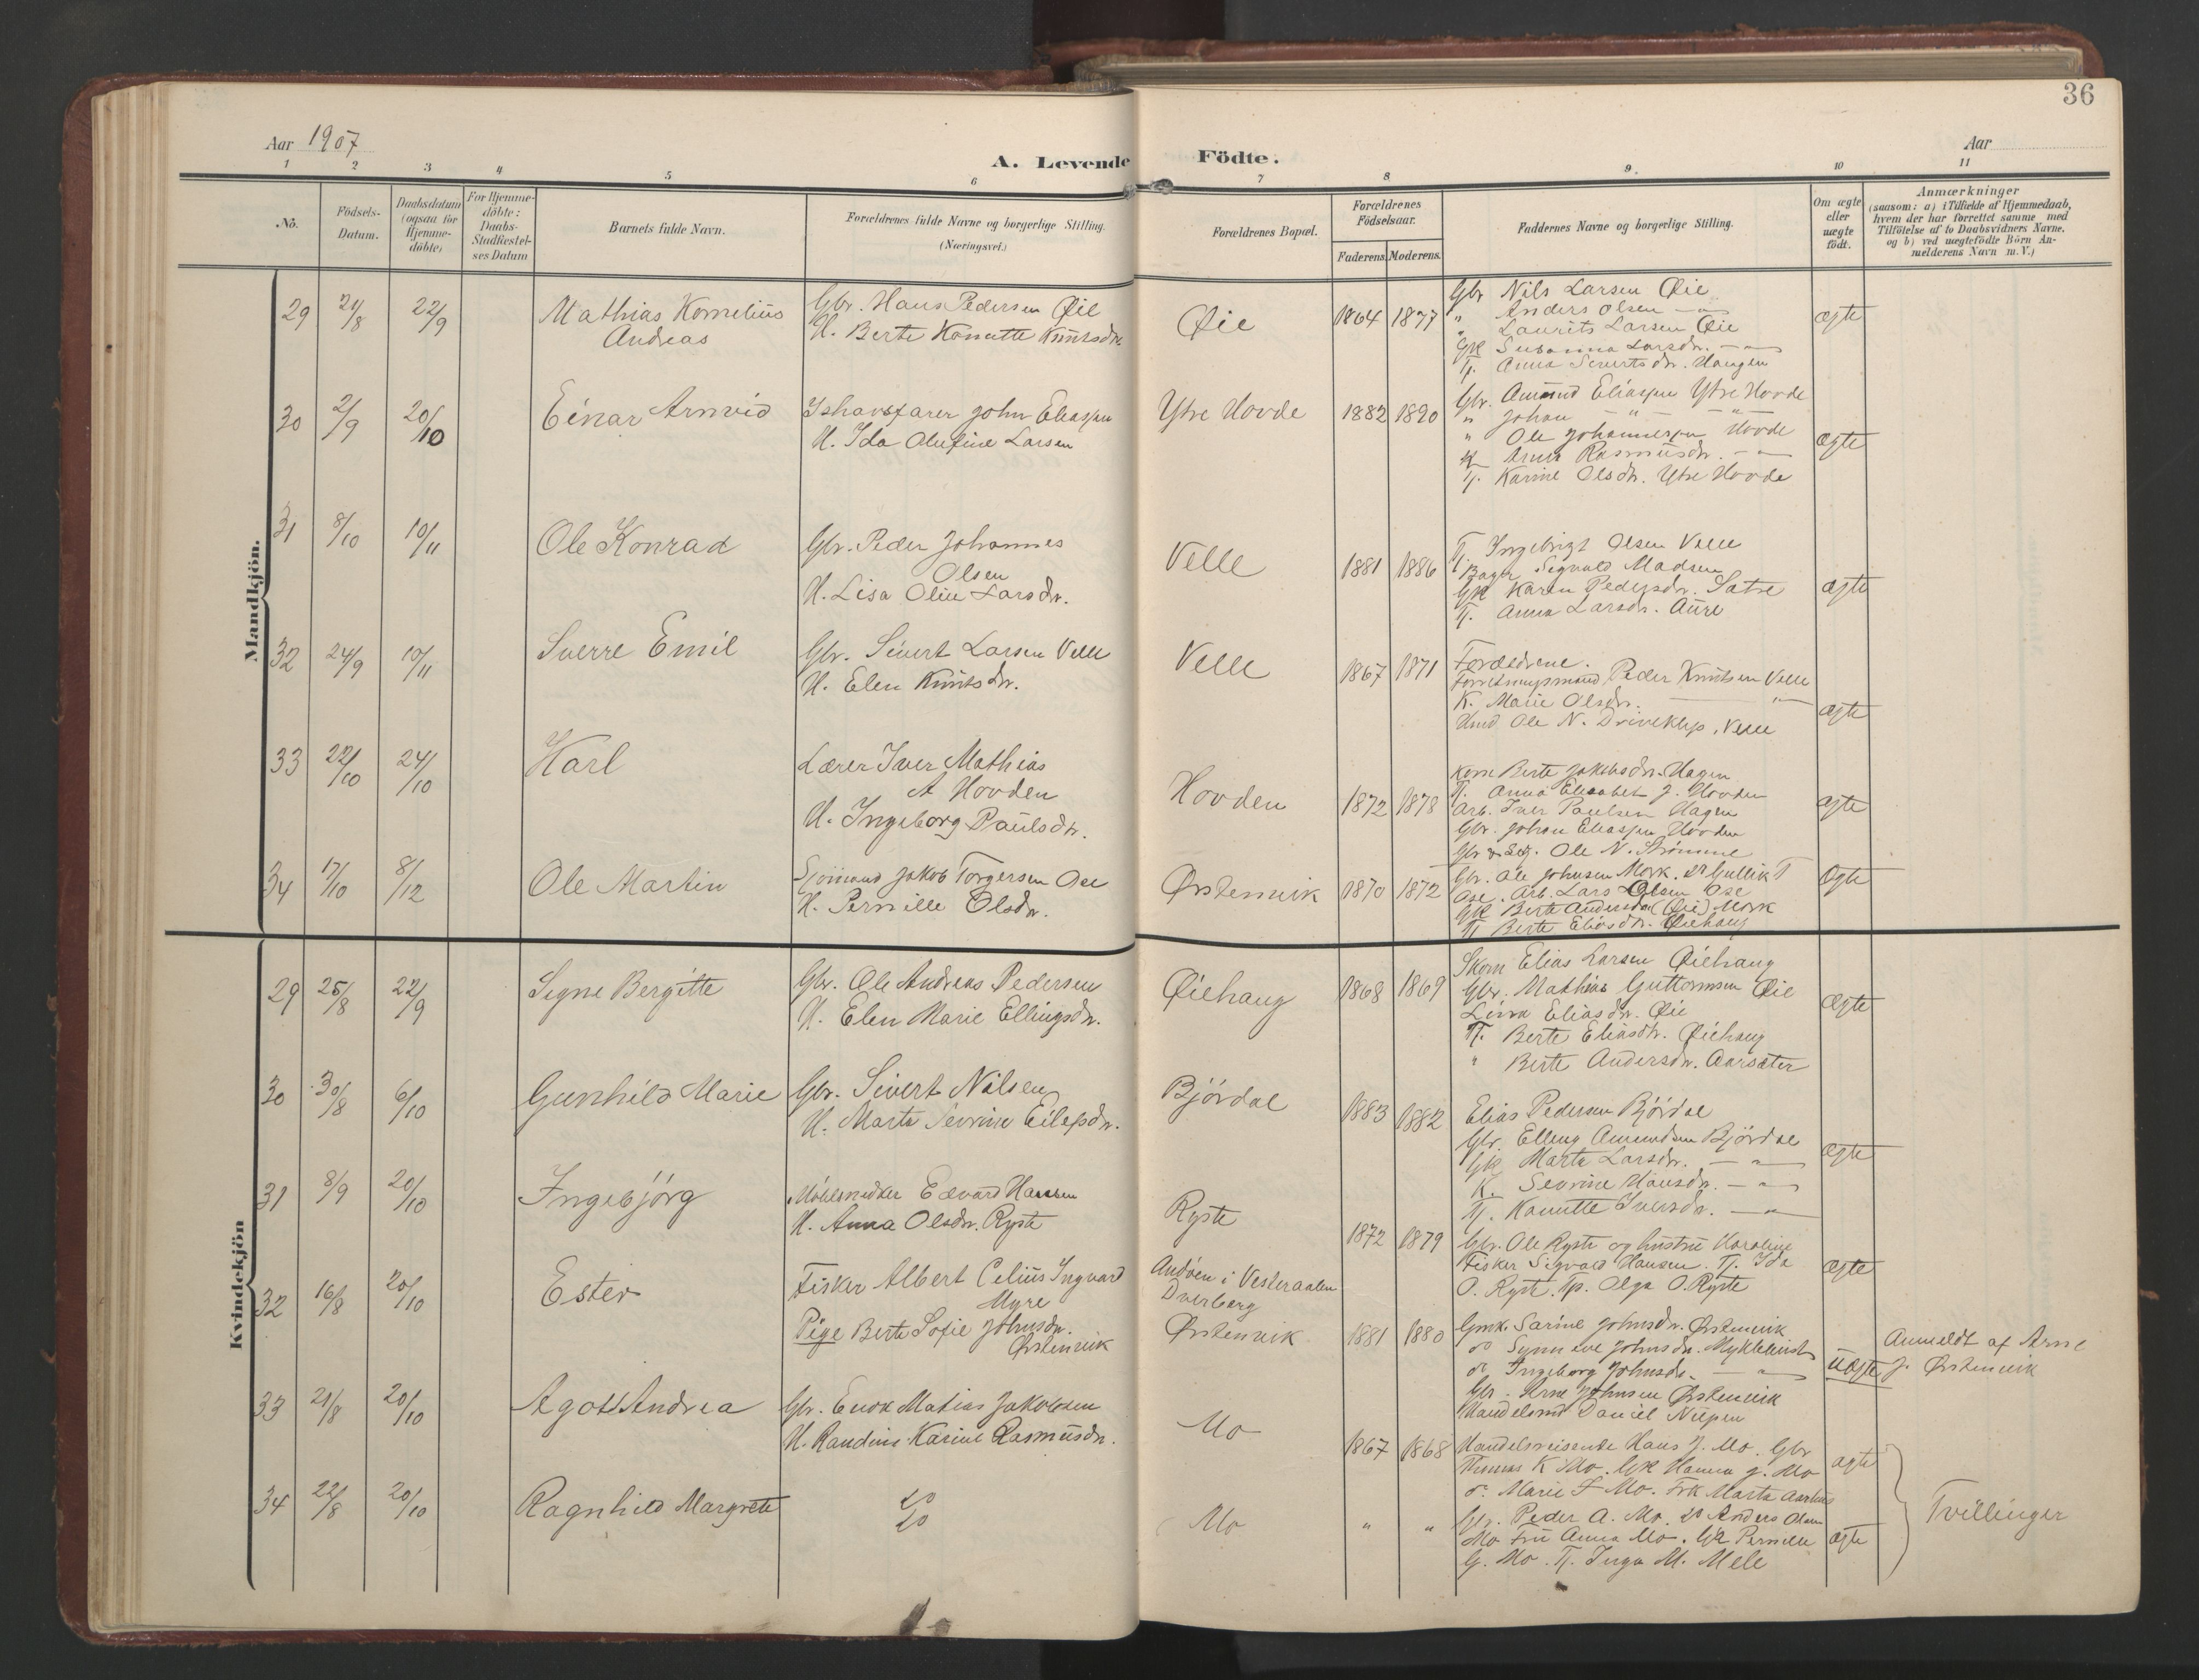 36
Aar 1907
A. Levende Födte.
Aar
1 2 3 4 5 6 7 8 9. 10 11
No.
Födsels-
Datum.
Daabsdatum
(ogsaa for
Hjemme-
döbte)
For Hjemme-
döbte:
Daabs-
Stadfæstel-
ses Datum
Barnets fulde Navn.
Forældrenes fulde Navne og borgerlige Stilling.
(Næringsvei.)
Forældrenes Bopæl.
Forældrenes
Födselsaar.
Faderens. Moderens.
Faddernes Navne og borgerlige Stilling.
Om ægte
eller
uægte
födt.
Anmærkninger
(saasom: a) i Tilfælde af Hjemmedaab,
hvem der har forrettet samme med
Tilföielse af to Daabsvidners Navne,
og b) ved uægtefödte Börn An-
melderens Navn m. V.)
Mandkjön.
29 21/8 22/9
Mathias Kornelius
Andreas
Gbr. Hans Pedersen Øie
H. Berte Kanutte Knutsdr.
Øie
1864 1877
Gbr Nils Larsen Øie
" Anders Olsen — " —
" Laurits Larsen Øie
Gk Susanna Larsdr. — " —
Tj. Anna Sivertsdr. Haugen
ægte
30 2/9 20/10
Einar Arnvid
Ishavsfarer John Eliassen
H. Ida Olufine Larsen
Ytre Hovde
1882 1890
Gbr. Amund Eliassen Ytre Hovde
" Johan — " — — " —
" Ole Johannessen Hovde
K Anna Rasmusdr. — " —
Tj. Karine Olsdr. Ytre Hovde
ægte
31 8/10 10/11
Ole Konrad
Gbr. Peder Johannes
Olsen
H. Lisa Oline Larsdr.
Velle
1881 1886
Tj. Ingebrigt Olsen Velle
Bager Sigvald Madsen
Gk Karen Pedersdr. Satre
Tj. Anna Larsdr. Aure
ægte
32 24/9 10/11
Sverre Emil
Gbr. Sivert Larsen Velle
H. Elen Knutsdr.
Velle
1867 1871
Forældrene.
Forretningsmand Peder Knutsen Velle
K. Marie Olsdr. — " —
Hmd Ole N. Driveklep, Velle
ægte
33 22/10 24/10
Karl
Lærer Iver Mathias
A Hovden
H. Ingeborg Paulsdr.
Hovden
1872 1878
Kone Berte Jakobsdr. Hagen
Tj. Anna Elisabet J. Hovden
Arb. Iver Paulsen Hagen
Gbr. Johan Eliassen Hovden
Gbr Ole N. Strömme
ægte
34 17/10 8/12
Ole Martin
Sjömand Jakob Torgersen Ose
H. Pernille Olsdr.
Ørstenvik
1870 1872
Gbr. Ole Johnsen Mork. do Gullik T
Ose. Arb. Lars Olsen Ose
Gk Berte Andersdr (Øie) Mork
Tj Berte Eliasdr. Øiehaug
Ægte
Kvindekjön
29 25/8 22/9
Signe Bergitte
Gbr. Ole Andreas Pedersen
H. Elen Marie Ellingsdr.
Øiehaug
1868 1869
Skom Elias Larsen Øiehaug
Gbr. Mathias Guttormsen Øie
Lina Eliasdr. Øie
Tj. Berte Eliasdr. Øiehaug
" Berte Andersdr. Aarsæter
ægte
30 30/8 6/10
Gunhild Marie
Gbr. Sivert Nilsen
H. Marta Sevrine Eilepsdr.
Björdal
1883 1882
Elias Pedersen Björdal
Gbr. Elling Amundsen Björdal
Gk Marta Larsdr. — " —
K. Sevrine Hansdr. — " —
Tj. Kanutte Iversdr. — " —
ægte
31 8/9 20/10
Ingebjörg
Möbelsnedker Edvard Hansen
H. Anna Olsdr. Ryste
Ryste
1872 1879
Gbr. Ole Ryste og hustru Karoline
Fisker Sigvald Hansen. Tj. Ida
O. Ryste. Tp. Olga O. Ryste
ægte
32 16/8 20/10
Ester
Fisker Albert Celius Ingvard
Myre
Pige Berte Sofie Johnsdr.
Ørstenvik
Andöen i Vesteraalen
Dverberg
Ørstenvik
1881 1880
Gmk. Sarine Johnsdr. Ørstenvik
do Synneve Johnsdr. Myklebust
do Ingeborg Johnsdr. — " —
Gbr. Arne Johnsen Ørstenvik
Handelsmd Daniel Nupen
uægte
Anmeldt af Arne
J. Ørstenvik
33 21/8 20/10
Agot Andrea
Gbr. Enok Matias Jakobsen
H. Randine Karine Rasmusdr.
Mo
1867 1868
Handelsreisende Hans J. Mo. Gbr
Thomas K Mo. Gk Hanna J. Mo
do Marie F Mo. Frk Marta Aarhus
ægte
34 22/8 20/10
Ragnhild Margrete
do
do
Mo
" "
Gbr. Peder A. Mo. do Anders Olsen
Mo Fru Anna Mo. Gk Pernille
G. Mo. Tj. Inga M. Mele
ægte
Tvillinger